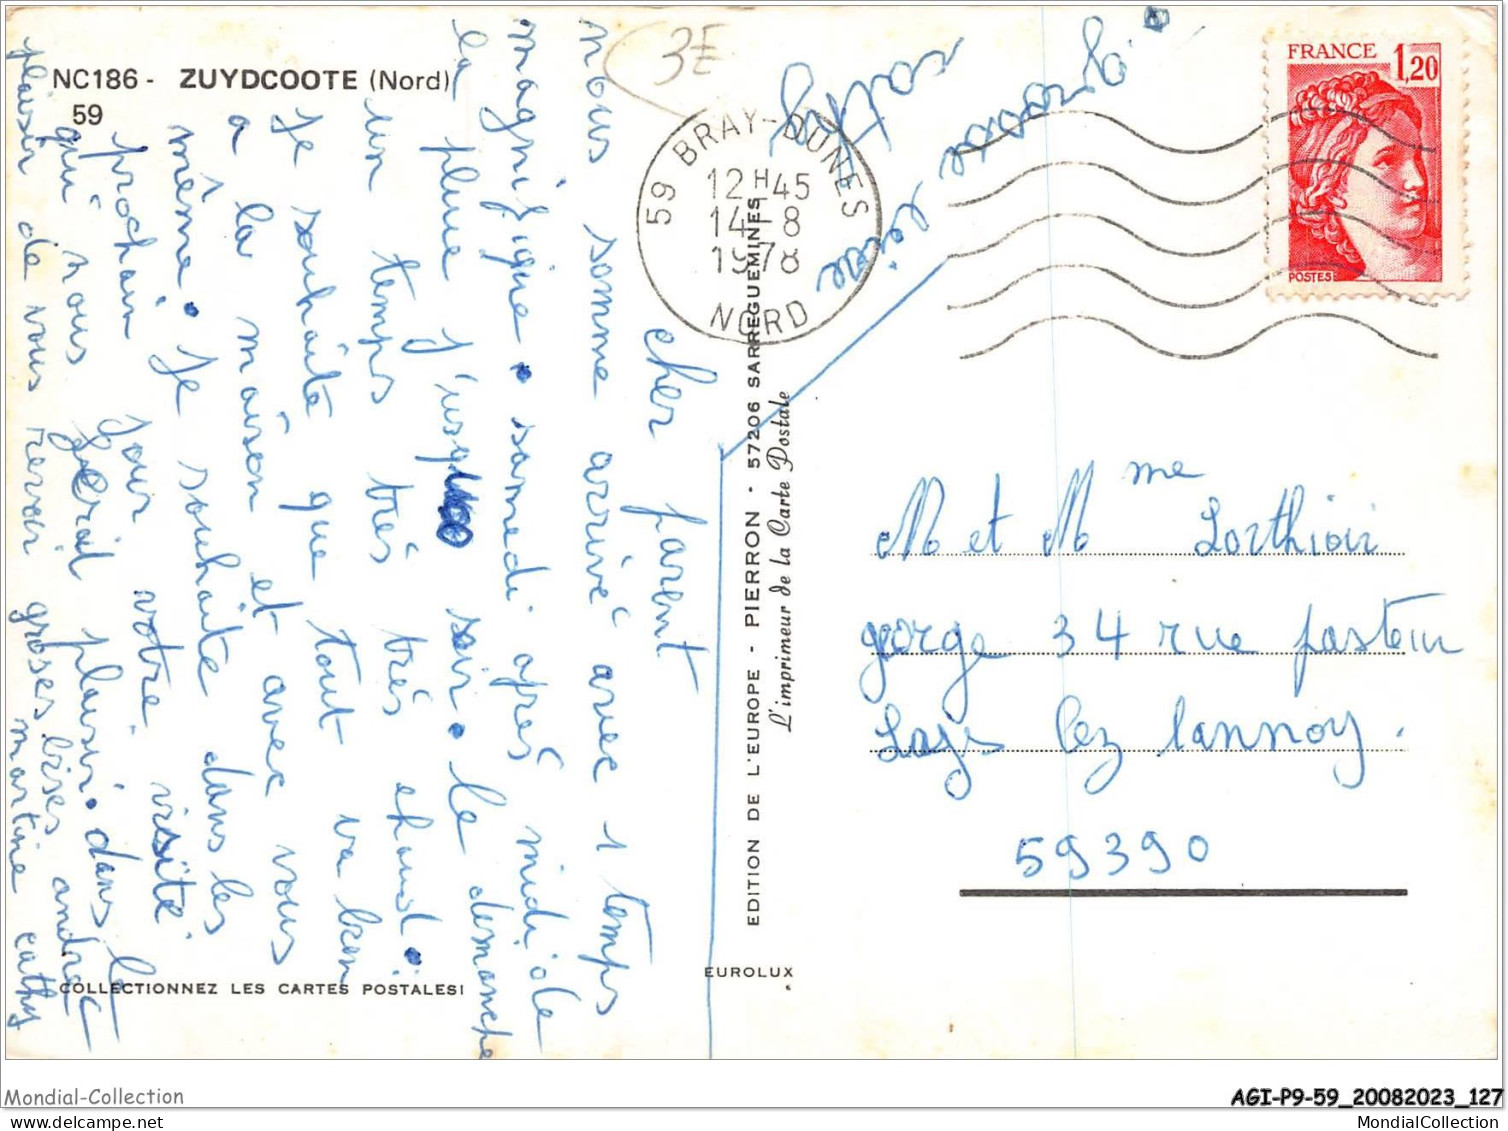 NC186 - ZUYDCOOTE (Nord)
59
3E
59 BRAY-DUNES
12H45
14-8
1978
NORD
FRANCE 1,20
POSTES
cher parent
nous somme arrivé avec 1 temps
magnifique. samedi après midi de
la pluie j'usqu soir. le dimanche
un temps très très chaud.
Je souhaite que tout va bien
a la maison et avec vous
même. Je souhaite dans les
prochain jour votre visite
qui nous ferait plaisir. dans le
plaisir de vous revoir groses bises andré
martine cathy
grosse
cathy
EDITION DE L'EUROPE - PIERRON - 57206 SARREGUEMINES
L'imprimeur de la Carte Postale
EUROLUX
COLLECTIONNEZ LES CARTES POSTALES!
M et Mme Lorthioir
george 34 rue pasteur
Lays lez lannoy.
59390
Mondial-Collection
AGI-P9-59_20082023_127
MondialCollection